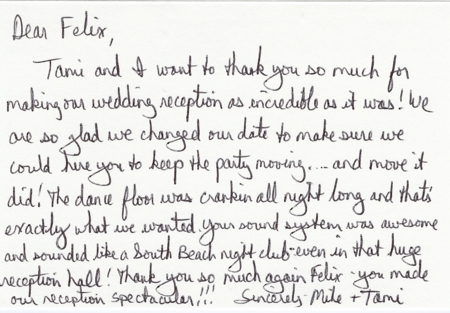 Dear Felix,
Tami and I want to thank you so much for
making our wedding reception as incredible as it was! We
are so glad we changed our date to make sure we
could hire you to keep the party moving.... and move it
did! The dance floor was crankin all night long and that's
exactly what we wanted. Your sound system was awesome
and sounded like a South Beach night club-even in that huge
reception hall! Thank you so much again Felix-you made
our reception spectacular!!! Sincerely-Mike + Tami